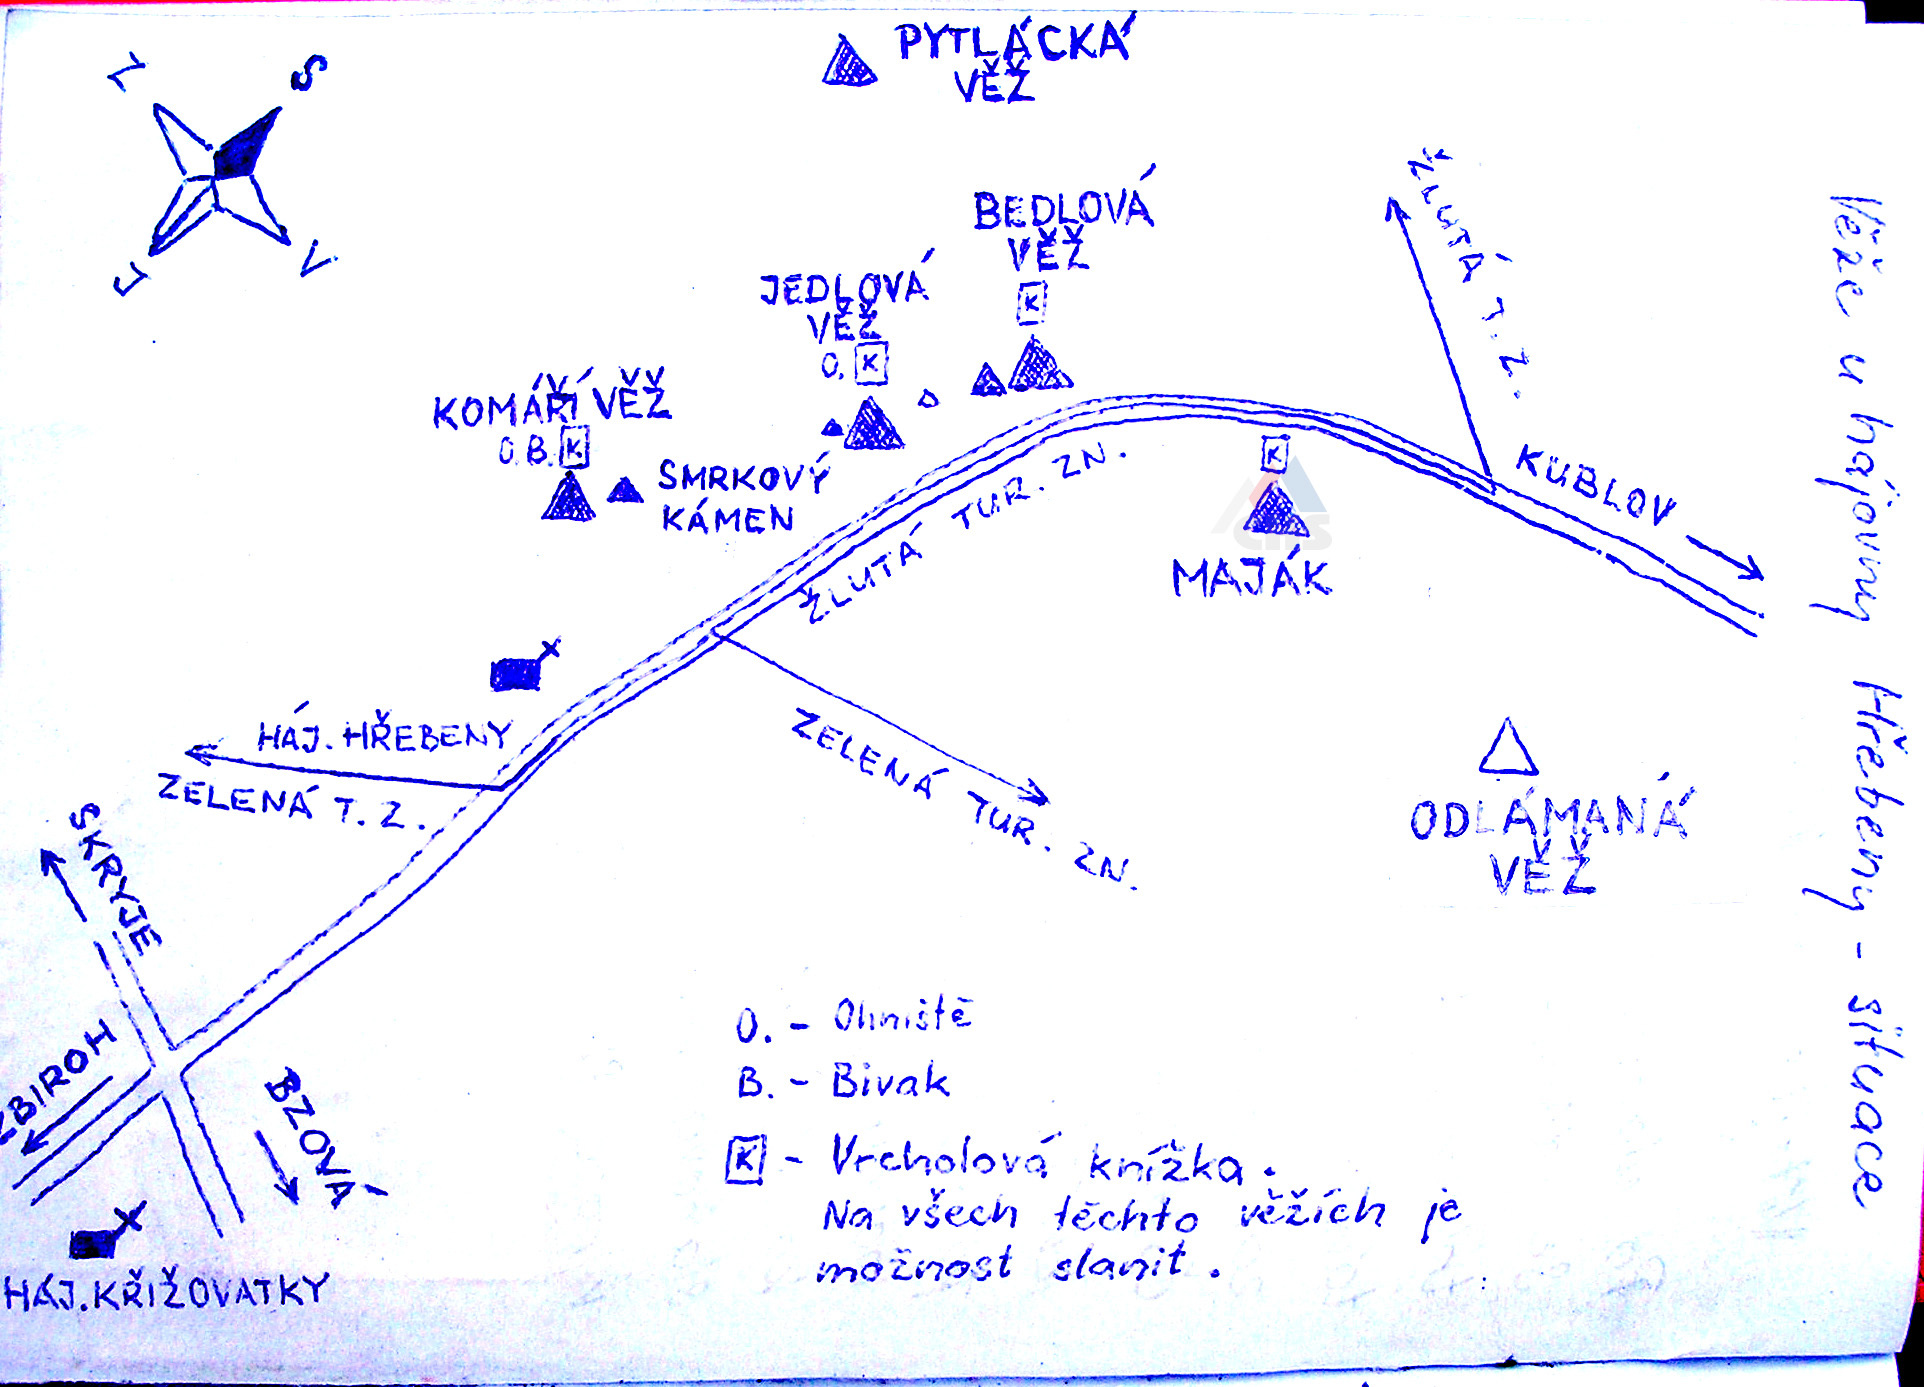 PYTLÁCKÁ
VĚŽ
Z
S
J
V
BEDLOVÁ
VĚŽ
K
JEDLOVÁ
VĚŽ
O. K
KOMÁŘÍ VĚŽ
O. B. K
SMRKOVÝ
KÁMEN
ŽLUTÁ T. Z.
KUBLOV
K
MAJÁK
ŽLUTÁ TUR. ZN.
HÁJ. HŘEBENY
ZELENÁ T. Z.
ZELENÁ TUR. ZN.
ODLÁMANÁ
VĚŽ
SKRYJE
ZBIROH
BZOVÁ
HÁJ. KŘIŽOVATKY
O. - Ohniště
B. - Bivak
K - Vrcholová knížka.
Na všech těchto věžích je
možnost slanit.
Věže u hájovny Hřebeny - situace